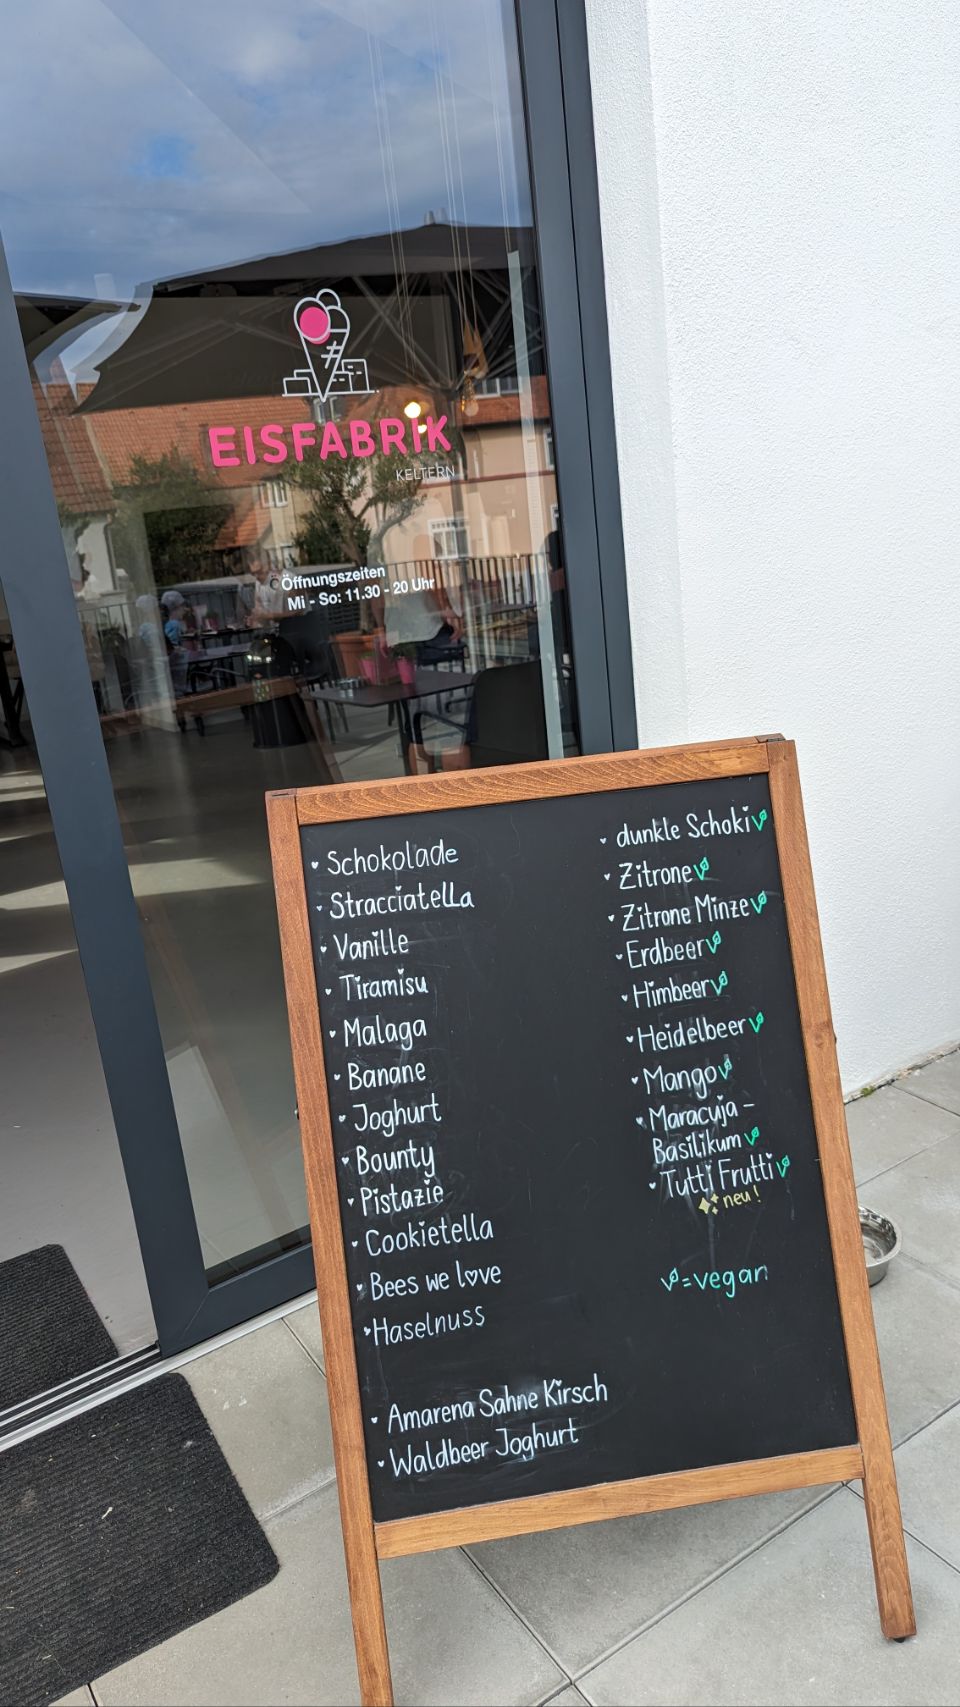 EISFABRIK
KELTERN
Öffnungszeiten
Mi - So: 11.30 - 20 Uhr
Schokolade
Stracciatella
Vanille
Tiramisu
Malaga
Banane
Joghurt
Bounty
Pistazie
Cookietella
Bees we love
Haselnuss
Amarena Sahne Kirsch
Waldbeer Joghurt
dunkle Schoki
Zitrone
Zitrone Minze
Erdbeer
Himbeer
Heidelbeer
Mango
Maracuja -
Basilikum
Tutti Frutti
neu!
=vegan